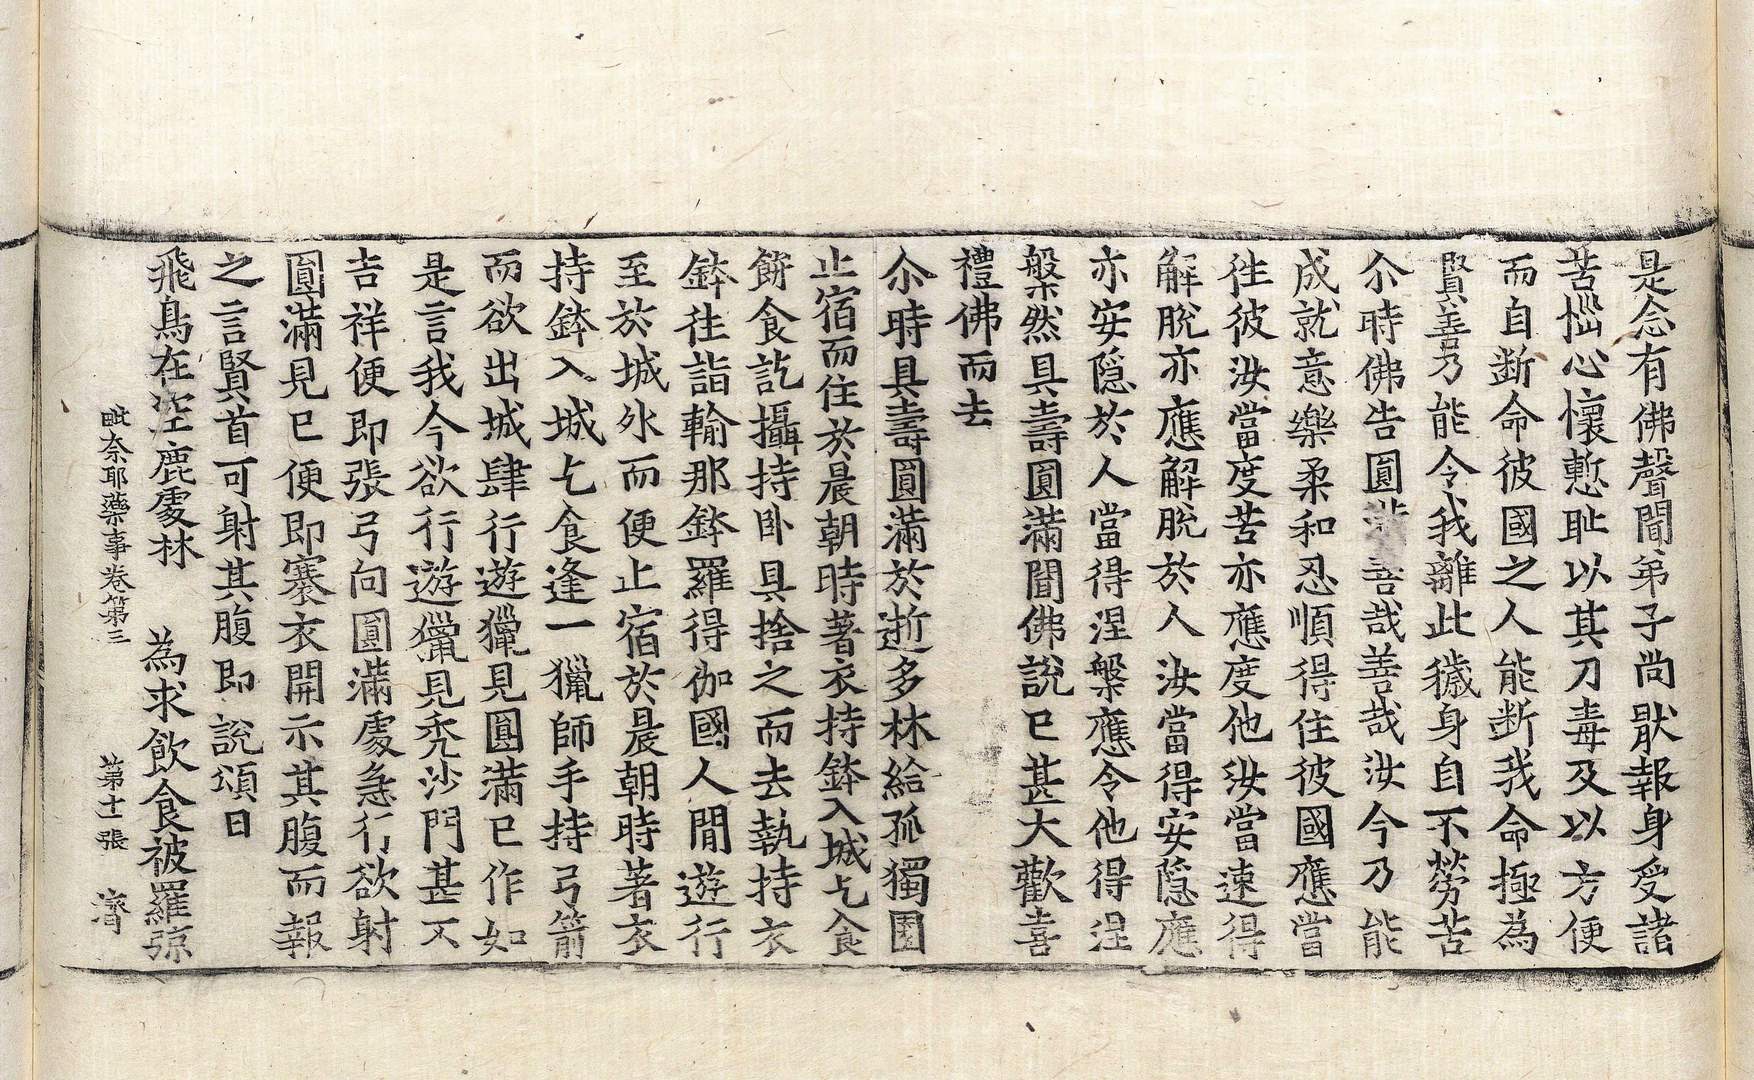 是念有佛聲聞弟子尚猒報身受諸
苦惱心懷慙耻以其刀毒及以方便
而自斷命彼國之人能斷我命極為
賢善乃能令我離此穢身自不勞苦
尒時佛告圓善哉善哉汝今乃能
成就意樂柔和忍順得住彼國應當
徃彼汝當度苦亦應度他汝當速得
解脫亦應解脫於人汝當得安隱應
亦安隱於人當得涅槃應令他得涅
槃然具壽圓滿聞佛說已甚大歡喜
禮佛而去
尒時具壽圓滿於逝多林給孤獨園
止宿而住於晨朝時著衣持鉢入城乞食
餅食訖攝持卧具捨之而去執持衣
鉢徃詣輸那鉢羅得伽國人間遊行
至於城外而便止宿於晨朝時著衣
持鉢入城乞食逢一獵師手持弓箭
而欲出城肆行遊獵見圓滿已作如
是言我今欲行遊獵見禿沙門甚不
吉祥便即張弓向圓滿處急行欲射
圓滿見已便即褰衣開示其腹而報
之言賢首可射其腹即說頌曰
飛鳥在空鹿處林　為求飲食被羅弶
毗奈耶藥事卷第三　第十二張　濟